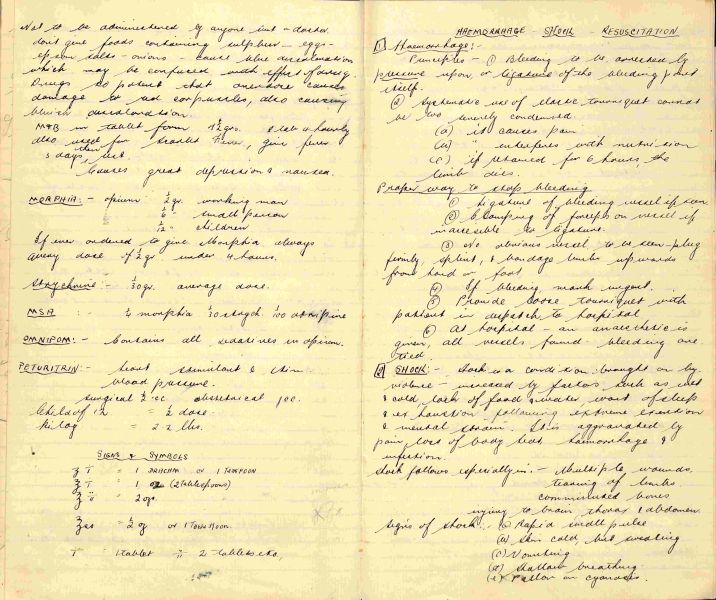 Not to be administered by anyone but - doctor
don't give foods containing sulphur - eggs -
epsom salts - onions - cause blue discoloration
which may be confused with effect of drug.
Drugs so potent that overdose causes
damage to red corpuscles, also causing
bluish discoloration.
M & B in tablet form 4 hourly
also used for scarlet fever, give fever
3 days, rest.
Causes great depression & nausea.
MORPHIA:- opium ½ gr. working man
1/6 " small person
1/12 " children
If ever ordered to give Morphia always
query dose of ½ gr under 4 hours.
Strychnine:- 1/30 gr. average dose.
MSA :- ¼ morphia 1/30 strych. 1/100 atropine
OMNIPOM:- Contains all sedatives in opium.
PETUITRIN:- heart stimulant &
blood pressure.
surgical ½ cc obstetrical 1 cc.
Child of 12 = ½ dose.
kilog = 2.2 lbs.
SIGNS & SYMBOLS
ʒ T = 1 DRACHM or 1 TEASPOON
ʒ T = 1 oz (2 tablespoons)
ʒ ii = 2 ozs
ʒ ss = ½ oz or 1 Tablespoon.
T = 1 tablet ii 2 tablets etc.
HAEMORRHAGE - SHOCK - RESUSCITATION
1 Haemorrhage:-
Principles - ① Bleeding to be arrested by
pressure upon or ligature of the bleeding point
itself.
② Systematic use of elastic tourniquet cannot
be too severely condemned.
(a) it causes pain
(b) " interferes with nutrition
(c) if retained for 6 hours, the
limb dies.
Proper way to stop bleeding
① Ligature of bleeding vessel if seen
② Clamping of forceps on vessel if
inaccessible to ligature.
③ No obvious vessel to be seen - plug
firmly, splint, & bandage limb upwards
from hand or foot
④ If bleeding, mark urgent.
⑤ Provide loose tourniquet with
patient in dispatch to hospital
⑥ At hospital - an anaesthetic is
given, all vessels found bleeding are
tied.
2 SHOCK:- Shock is a condition brought on by
violence - increased by factors such as wet
& cold, lack of food & water, want of sleep
& exhaustion following extreme exertion
& mental strain. It is aggravated by
pain, loss of body heat haemorrhage &
infection.
Shock follows especially in:- Multiple wounds
tearing of limbs
comminuted bones
injury to brain, thorax & abdomen.
Signs of shock:- (a) Rapid small pulse
(b) Skin cold, but sweating
(c) Vomiting
(d) Shallow breathing
(e) Pallor or cyanosis.